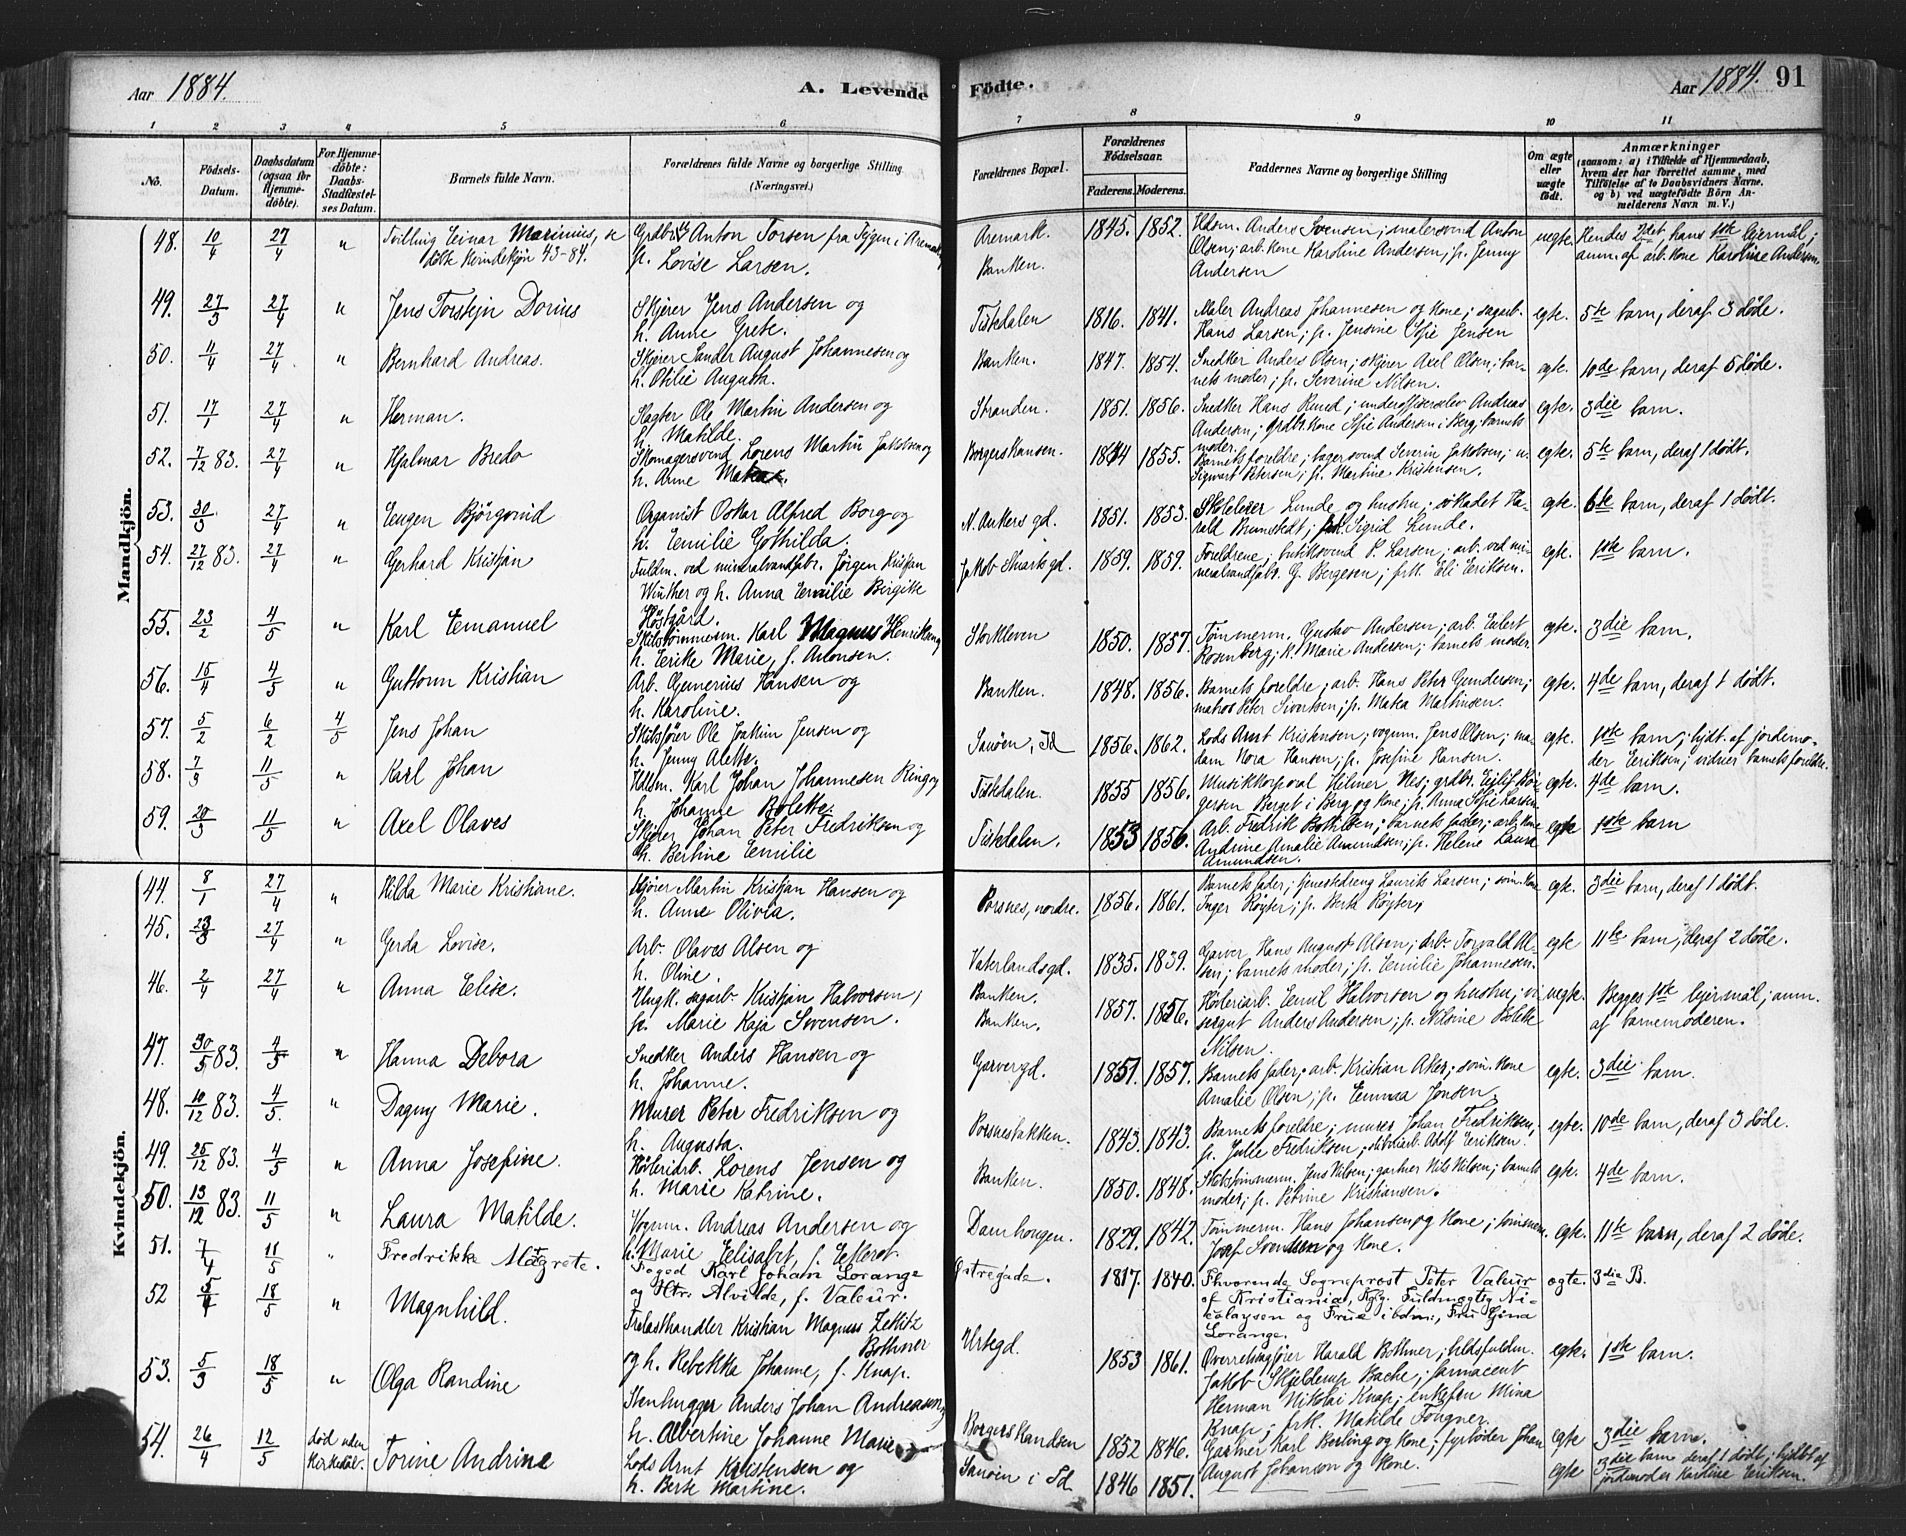 Aar 1884.
A. Levende Födte.
Aar 1884. 91
1 2 3 4 5 6 7 8 9 10 11
No.
Födsels-Datum.
Daabsdatum (ogsaa for Hjemmedöbte).
For Hjemmedöbte: Daabs-Stadfæstelses Datum.
Barnets fulde Navn.
Forældrenes fulde Navne og borgerlige Stilling (Næringsvei.)
Forældrenes Bopæl.
Forældrenes Födselsaar.
Faderens. Moderens.
Faddernes Navne og borgerlige Stilling
Om ægte eller uægte födt.
Anmærkninger
(saasom: a) i Tilfælde af Hjemmedaab, hvem der har forrettet samme, med Tilföielse af to Daabsvidners Navne, og b) ved uægtefödte Börn Anmelderens Navn m. V.)
Mandkjön.
48. 10/4 27/4 " Tvilling Einar Marinus, döbte Kvindekjön 43-84. Anton Torsen fra i Aremark, p. Lovise Larsen. Aremark. Banken. 1845. 1852. Anders Svensen; malersvend Anton Olsen; arb. kone Karoline Andersen; p. Jenny Andersen uegte. Hendes 2det, hans 1ste leiermål; anm. af arb. kone Karoline Andersen.
49. 27/3 27/4 " Jens Torstejn Dorius Skjærer Jens Andersen og h. Anne Grete. Tistedalen 1816. 1841. Maler Andreas Johannesen og kone; sagarb. Hans Larsen; p. Jensine Jensen egte. 5te barn, deraf 3 döde.
50. 11/4 27/4 " Bernhard Andreas. Skjærer Sander August Johannesen og h. Otilie Augusta. Banken. 1847. 1854. Snedker Anders Olsen; skjærer Axel Olsen; barnets moder; p. Severine Nilsen. egte. 10de barn, deraf 5 döde.
51. 17/1 27/4 " Herman. Slagter Ole Martin Andersen og h. Matilde. Stranden. 1851. 1856. Snedker Hans Ruud; underoffiserselev Andreas Andersen; grdbr. kone Andersen i Berg; barnets moder. egte. 3die barn.
52. 7/12 83. 27/4 " Hjalmar Bredo Skomagersvend Lorens Martin Jakobsen og h. Anne Borgerskansen. 1855. Barnets foreldre; bagersvend Severin Jakobsen; Sigvart Petersen; p. Martine Kristensen. egte. 5te barn, deraf 1 dödt.
53. 30/3 27/4 " Eugen Björgvind Organist Oskar Alfred Borg og h. Emilie Gothilda. N. Ankers gd. 1851. 1853. Lunde og hustru; Harald Sigrid Lunde. egte. 6te barn, deraf 1 dödt.
54. 27/12 83. 27/4 " Gerhard Kristjan Fuldm. ved mineralvandfabr. Jörgen Kristjan Winther og h. Anna Emilie Birgitte Höstgård. Jakob gd. 1859. 1859. Foreldrene; butiksvend P. Larsen; arb. ved mineralvandfabr. G. Bergesen; frk. Eli Eriksen. egte. 1ste barn.
55. 23/2 4/5 " Karl Emanuel Skibstömmerm. Karl Magnus Henriksen og h. Erike Marie, f. Antonsen. Storkleven 1850. 1857. Tömmerm. Gustav Andersen; arb. Eilert Rosenberg; k. Marie Andersen; barnets moder. egte. 3die barn.
56. 15/4 4/5 " Guttorm Kristian Arb. Gunerius Hansen og h. Karoline. Banken. 1848. 1856. Barnets foreldre; arb. Hans Peter Gundersen; matros Peter Sivertsen; p. Matea Mathisen. egte. 4de barn, deraf 1 dödt.
57. 5/2 6/2 4/5 Jens Johan Skibsförer Ole Joakim Jensen og h. Jenny Alette. Sauöen, Id 1856. 1862. Lods Arnt Kristensen; vognm. Jens Olsen; madam Nora Hansen; p. Josefine Hansen. egte. 1ste barn; hjdt. af jordemoder Eriksen; vidner barnets foreldre.
58. 7/3 11/5 " Karl Johan Karl Johan Johannesen Ring og h. Johanne Bolette. Tistedalen. 1855 1856. Musikkorporal Helmer Nes; grdbr. Berget i Berg og kone; p. Anna Larsen egte. 4de barn.
59. 20/3 11/5 " Axel Olaves Skjærer Johan Peter Fredriksen og h. Bertine Emilie Tistedalen. 1853 1856. Arb. Fredrik barnets fader; arb. kone Andrine Amalie Amundsen; p. Helene Laura Amundsen. egte 1ste barn
Kvindekjön.
44. 8/1 27/4 " Hilda Marie Kristiane. Kjörer Martin Kristjan Hansen og h. Anne Olivia. Porsnes, nordre. 1856. 1861. Barnets fader; tjenestedreng Laurits Larsen; Inger Röyter; p. Berta Röyter; egte. 3die barn, deraf 1 dödt.
45. 23/3 27/4 " Gerda Lovise. Arb. Olaves Alsen og h. Oline. Vaterlandsgd. 1835. 1839. Garver Hans August Alsen; arb. Torvald Alsen; barnets moder; p. Emilie Johannesen. egte 11te barn, deraf 2 döde.
46. 2/4 27/4 " Anna Elise. Ungk. sagarb. Kristjan Halvorsen; p. Marie Kaja Svensen. Banken. Banken. 1857. 1856. Emil Halvorsen og hustru; Anders Andersen; p. Nilsine Nilsen. uegte. Begges 1ste leiermål; anm. af barnemoderen.
47. 30/5 83. 4/5 " Hanna Debora Snedker Anders Hansen og h. Johanne. Garvergd. 1851. 1857. Barnets fader; arb. Kristian Aker; kone Amalie Olsen; p. Emma Jensen. egte. 3die barn.
48. 10/12 83. 4/5. " Dagny Marie. Murer Peter Fredriksen og h. Augusta. Porsnesbakken. 1843. 1843. Barnets foreldre; murer Johan Fredriksen; p. Julie Fredriksen; Adolf Eriksen. egte. 10de barn, deraf 3 döde.
49. 25/12 83. 4/5 " Anna Josefine. Lorens Jensen og h. Marie Katrine. Banken. 1850. 1848. Skibstömmerm. Jens Nilsen; gartner Nils Nilsen; barnets moder; p. Petrine Kristiansen. egte. 4de barn.
50. 13/12 83. 11/5 " Laura Matilde. Vognm. Andreas Andersen og h. Marie Elisabet, f. Damhougen. 1829. 1842. Tömmerm. Hans Johansen og kone; tömmerm. Josef Svendsen og kone. egte. 11te barn, deraf 2 döde.
51. 7/4 11/5 " Fredrikke Margrete. Foged Karl Johan Lorange og Htr. Alvilde, f. Valeur. Östregade. 1817. 1840. Fhværende Sogneprost Peter Valeur af Kristiania, Kgl. Fuldmægtig Nicolaysen og Frue ibdm., Fru Gina Lorange. ægte. 3die B.
52 5/4 18/5 " Magnhild. Trelasthandler Kristian Magnus Zetlitz Bothner og h. Rebekka Johanne, f. Knap. Urtegd. 1853 1861. Overretssagförer Harald Bothner; fuldm. Jakob Skjelderup Bache; farmaceut Herman Nikolai Knap; enkefru Mina Knap; frk. Matilde Fougner. egte. 1ste barn.
53. 5/3 18/5 " Olga Randine Stenhugger Anders Johan Andreasen og h. Albertine Johanne Marie Borgerskandsen 1852 1846. Gartner Karl Berling og kone; fyrböder Johan August Johanson og kone. egte 3die barn.
54. 26/4 12/5 död uden kirkedåb. Torine Andrine Lods Arnt Kristensen og h. Berte Martine. Sauöen i Id 1846 1851. — — — egte 9die barn deraf 1 dödt; hjdt. af jordemoder Karoline Eriksen.